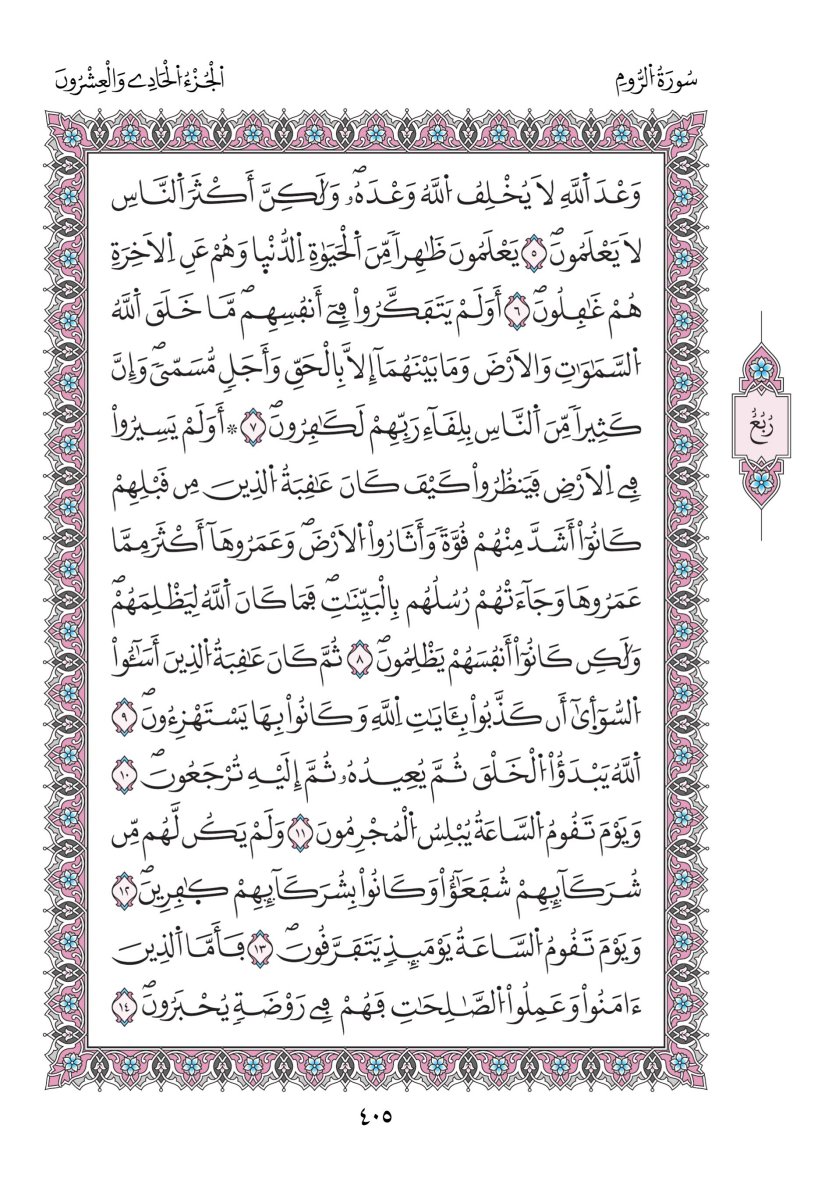 سُورَةُ اُ۬لرُّومِ
اَ۬لْجُزْءُ اُ۬لْحَادِے وَالْعِشْرُونَ
وَعْدَ اَ۬للَّهِ لَا يُخْلِفُ اُ۬للَّهُ وَعْدَهُۥۖ وَلَٰكِنَّ أَكْثَرَ اَ۬لنَّاسِ
لَا يَعْلَمُونَۖ ٥ يَعْلَمُونَ ظَٰهِراٗ مِّنَ اَ۬لْحَيَوٰةِ اِ۬لدُّنْي۪ا وَهُمْ عَنِ اِ۬لَاخِرَةِ
هُمْ غَٰفِلُونَۖ ٦ أَوَلَمْ يَتَفَكَّرُواْ فِےٓ أَنفُسِهِمۖ مَّا خَلَقَ اَ۬للَّهُ
اُ۬لسَّمَٰوَٰتِ وَالَارْضَ وَمَا بَيْنَهُمَآ إِلَّا بِالْحَقِّ وَأَجَلٖ مُّسَمّيٗۖ وَإِنَّ
كَثِيراٗ مِّنَ اَ۬لنَّاسِ بِلِقَآءِ رَبِّهِمْ لَكَٰفِرُونَۖ ٧ ۞ أَوَلَمْ يَسِيرُواْ
فِے اِ۬لَارْضِ فَيَنظُرُواْ كَيْفَ كَانَ عَٰقِبَةُ اُ۬لذِينَ مِن قَبْلِهِمْ
كَانُوٓاْ أَشَدَّ مِنْهُمْ قُوَّةٗ وَأَثَارُواْ اُ۬لَارْضَۖ وَعَمَرُوهَآ أَكْثَرَ مِمَّا
عَمَرُوهَا وَجَآءَتْهُمْ رُسُلُهُم بِالْبَيِّنَٰتِۖ فَمَا كَانَ اَ۬للَّهُ لِيَظْلِمَهُمْۖ
وَلَٰكِن كَانُوٓاْ أَنفُسَهُمْ يَظْلِمُونَۖ ٨ ثُمَّ كَانَ عَٰقِبَةُ اُ۬لذِينَ أَسَٰٓـُٔواْ
اُ۬لسُّوٓأ۪يٰٓ أَن كَذَّبُواْ بِـَٔايَٰتِ اِ۬للَّهِ وَكَانُواْ بِهَا يَسْتَهْزِءُونَۖ ٩
اَ۬للَّهُ يَبْدَؤُاْ اُ۬لْخَلْقَ ثُمَّ يُعِيدُهُۥ ثُمَّ إِلَيْهِ تُرْجَعُونَۖ ١٠
وَيَوْمَ تَقُومُ اُ۬لسَّاعَةُ يُبْلِسُ اُ۬لْمُجْرِمُونَ ١١ وَلَمْ يَكُن لَّهُم مِّن
شُرَكَآئِهِمْ شُفَعَٰٓؤُاْ وَكَانُواْ بِشُرَكَآئِهِمْ كٰ۪فِرِينَۖ ١٢
وَيَوْمَ تَقُومُ اُ۬لسَّاعَةُ يَوْمَئِذٖ يَتَفَرَّقُونَۖ ١٣ فَأَمَّا اَ۬لذِينَ
ءَامَنُواْ وَعَمِلُواْ اُ۬لصَّٰلِحَٰتِ فَهُمْ فِے رَوْضَةٖ يُحْبَرُونَۖ ١٤
رُبُعُ
٤٠٥